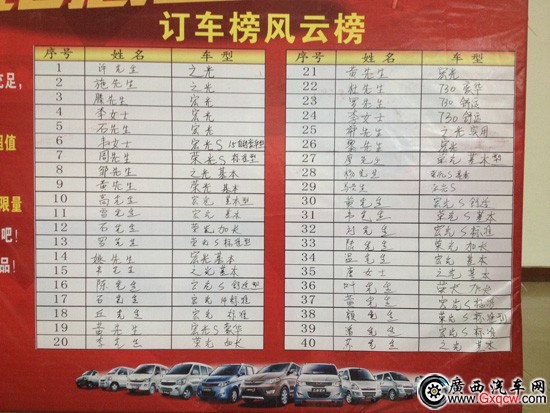 订车榜风云榜
序号 姓名 车型
1 许先生 之光
2 施先生 之光
3 滕先生 宏光
4 李女士 宏光
5 石先生 宏光
6 韦女士 宏光S
7 周先生 荣光S 标准型
8 邹先生 之光 基本
9 黄先生 荣光 基本
10 高先生 宏光 基本型
11 雷先生 宏光 基本
12 石先生 荣光 加长
13 罗先生 荣光S 标准型
14 姚先生 宏光 基本
15 先生 之光 基本
16 陈先生 宏光S 舒适型
17 石先生 宏光 标准
18 丘先生 宏光 标准
19 黄先生 宏光S 豪华
20 李先生 荣光 加长
序号 姓名 车型
21 黄先生 宏光
22 杜先生 730 豪华
23 罗先生 730 舒适
24 李女士 730 舒适
25 先生 之光 实用
26 黎先生 宏光
27 廖先生 荣光 基本型
28 杨先生 荣光S 基本
29 马先生 宏光S
30 黄先生 宏光S 舒适
31 韦先生 荣光S 基本
32 刘先生 宏光S 标准
33 陆先生 荣光 加长
34 吕先生 宏光S 基本
35 唐女士 之光 基本
36 叶先生 荣光 加长
37 黄先生 宏光S 标准
38 赖先生 荣光S 标准型
39 潘先生 宏光S 标准
40 先生 之光 基本
充足,
超值
限量
吧!
品!
廣西汽车网
www.Gxqcw.com